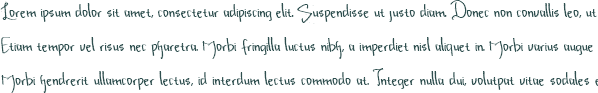 Lorem ipsum dolor sit amet, consectetur adipiscing elit. Suspendisse ut justo diam. Donec non convallis leo, ut
Etiam tempor vel risus nec pharetra. Morbi fringilla luctus nibh, a imperdiet nisl aliquet in. Morbi varius augue
Morbi hendrerit ullamcorper lectus, id interdum lectus commodo at. Integer nulla dui, volutpat vitae sodales